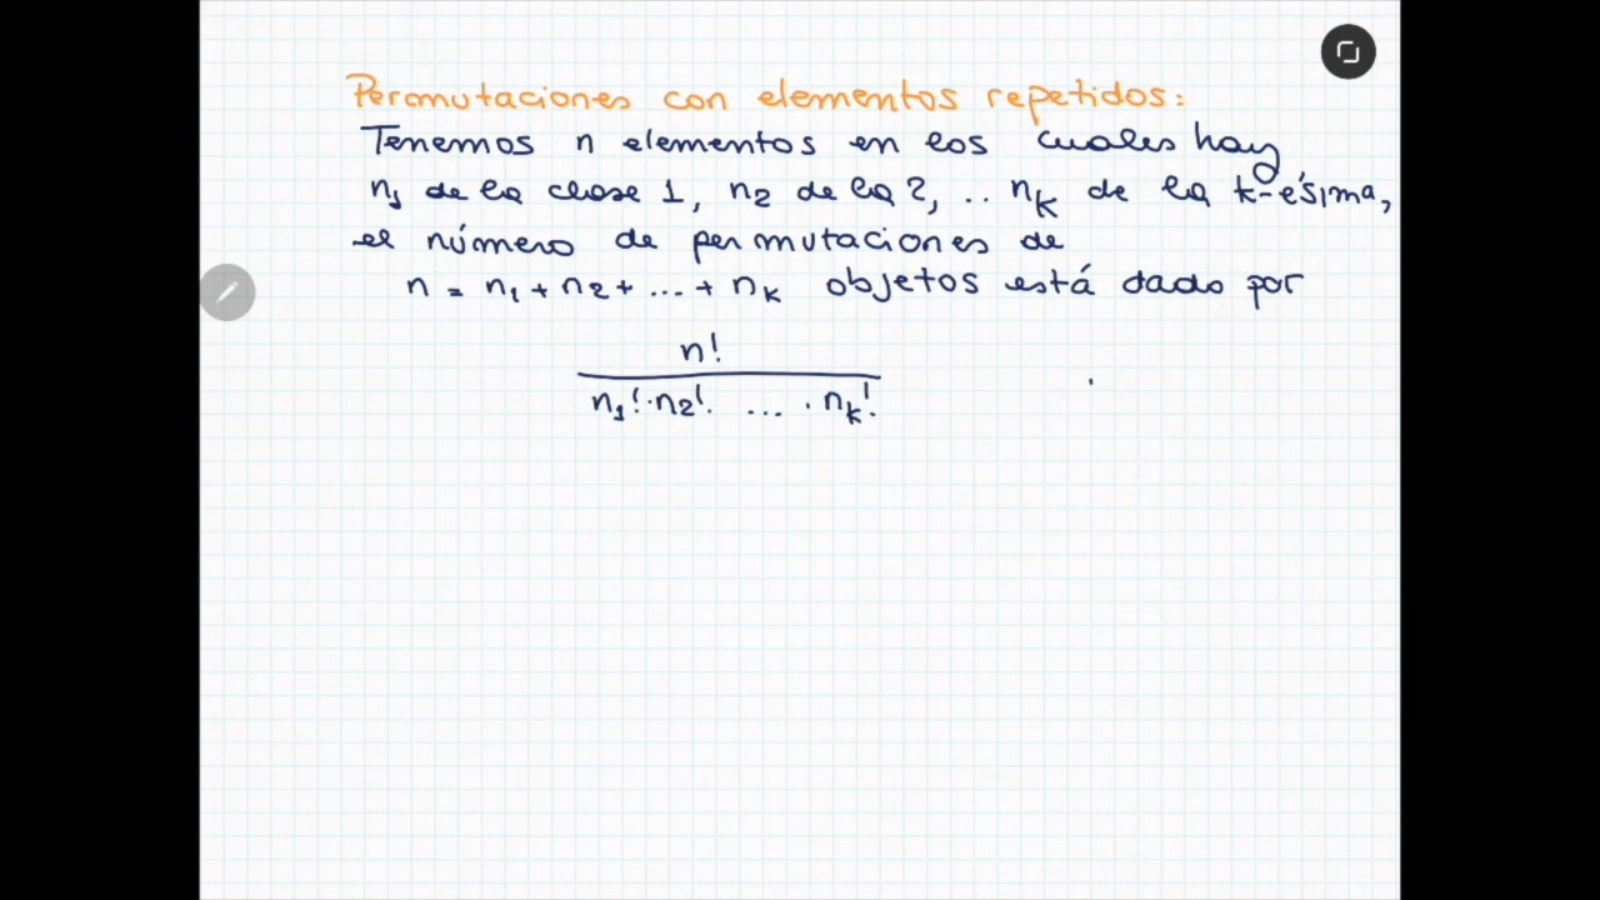 Permutaciones con elementos repetidos:
Tenemos n elementos en los cuales hay
n₁ de la clase 1, n₂ de la 2, .. nₖ de la k-ésima,
el número de permutaciones de
n = n₁ + n₂ + ... + nₖ objetos está dado por
n!
n₁! · n₂! · ... · nₖ!